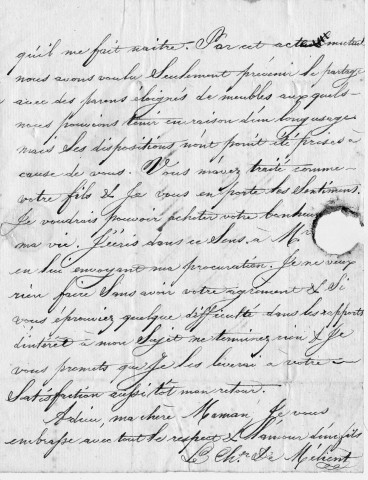 qu'il me fait naitre. Par cet acte mutuel
nous avons voulu Seulement prévenir le partage
avec des parens éloignés de meubles aux quels
nous pouvions tenir en raison d'un long usage
mais Ses dispositions n'ont point été prises à
cause de vous. Vous m'avez traité comme
votre fils & Je vous en porte les Sentimens.
Je voudrais pouvoir acheter votre bonheur
ma vie. J'écris dans ce Sens à M
en lui envoyant ma procuration. Je ne veux
rien faire Sans avoir votre agrément & Si
vous eprouviez quelque difficulté dans les rapports
d'intérêt à mon Sujet ne terminez rien & Je
vous promets que Je les leverai à votre
Satisfaction aussitôt mon retour.
Adieu, ma chere Maman, Je vous
embrasse avec tout le respect & l'amour d'un fils
Le Ch.er De